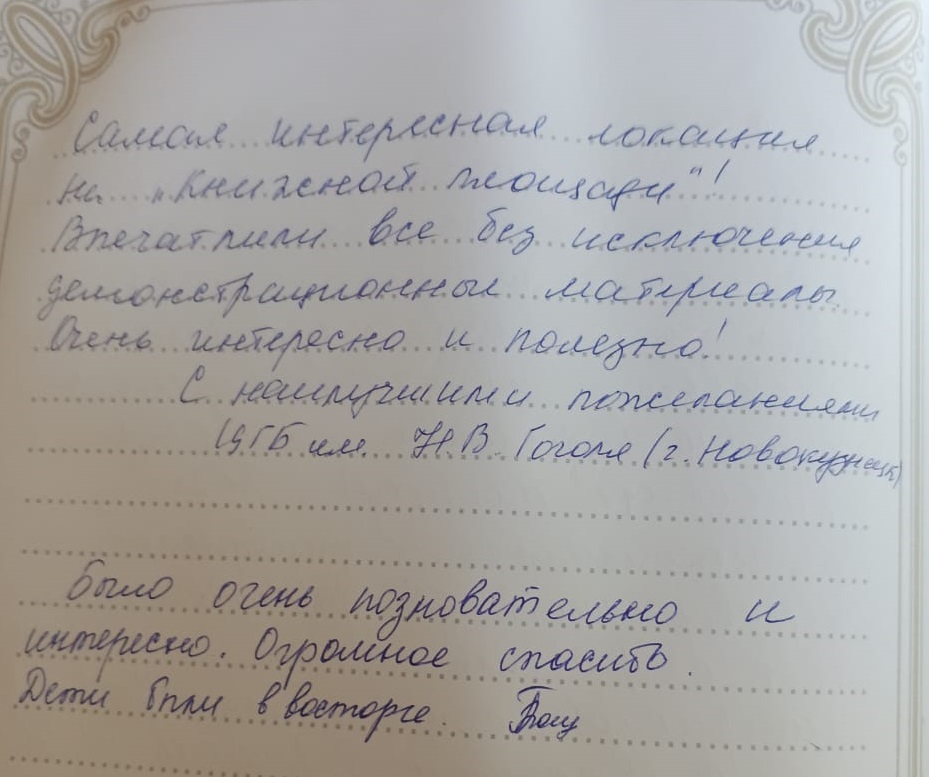 Самая интересная локация
на "Книжной площади"!
Впечатлили все без исключения
демонстрационные материалы.
Очень интересно и полезно!
С наилучшими пожеланиями
ЦГБ им. Н.В. Гоголя (г. Новокузнецк)
Было очень позновательно и
интересно. Огромное спасибо.
Дети были в восторге.